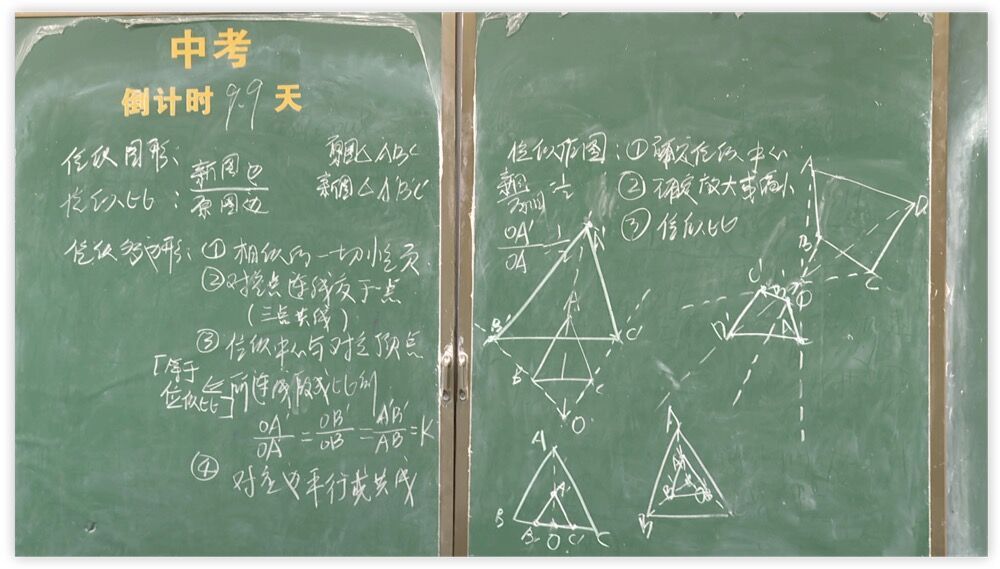 中考
倒计时 99 天
位似图形:
原图△ABC
位似比: 新图边
原图边
新图△A'B'C'
位似多边形: ① 相似的一切性质
② 对应点连线交于一点
(三点共线)
③ 位似中心与对应顶点
所连线段成比例
[等于
位似比]
OA'/OA = OB'/OB = A'B'/AB = K
④ 对应边平行或共线
位似作图: ① 确定位似中心
② 确定放大或缩小
③ 位似比
新图/原图 = 1/2
OA'/OA = 1/2
A
B
C
A'
B'
C'
O
A
B
C
D
O
C'
B'
D'
A'
A
A'
B
B'
O
C'
C
A
A'
B
B'
O
C'